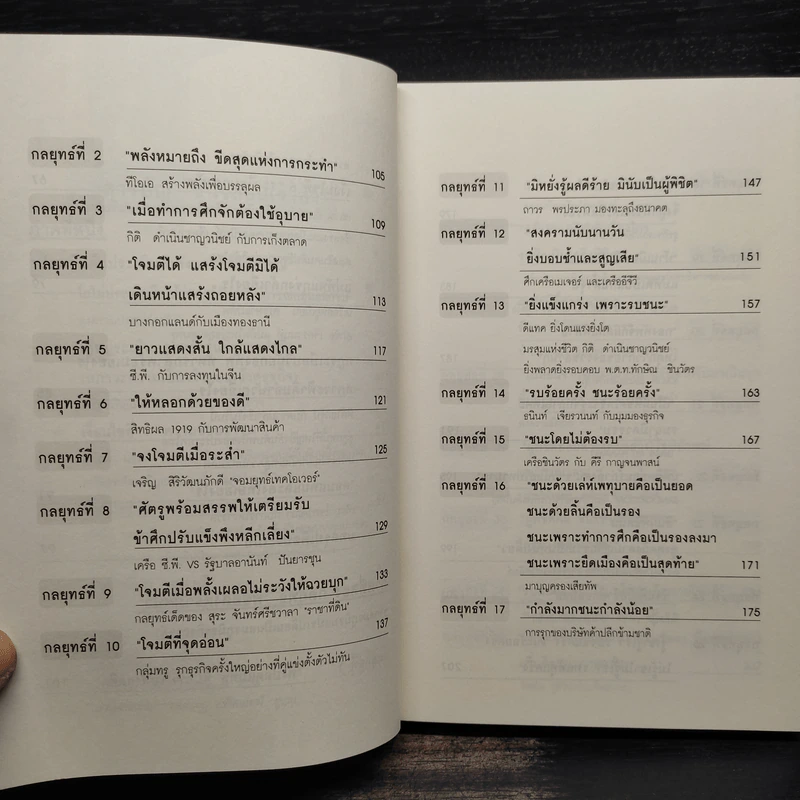 กลยุทธ์ที่ 2 "พลังหมายถึง ขีดสุดแห่งการกระทำ" 105
ทีโอเอ สร้างพลังเพื่อบรรลุผล
กลยุทธ์ที่ 3 "เมื่อทำการศึกจักต้องใช้อุบาย" 109
กิติ ดำเนินชาญวนิชย์ กับการเก็งตลาด
กลยุทธ์ที่ 4 "โจมตีได้ แสร้งโจมตีมิได้
เดินหน้าแสร้งถอยหลัง" 113
บางกอกแลนด์กับเมืองทองธานี
กลยุทธ์ที่ 5 "ยาวแสดงสั้น ใกล้แสดงไกล" 117
ซี.พี. กับการลงทุนในจีน
กลยุทธ์ที่ 6 "ให้หลอกด้วยของดี" 121
สิทธิผล 1919 กับการพัฒนาสินค้า
กลยุทธ์ที่ 7 "จงโจมตีเมื่อระส่ำ" 125
เจริญ สิริวัฒนภักดี "จอมยุทธ์เทคโอเวอร์"
กลยุทธ์ที่ 8 "ศัตรูพร้อมสรรพให้เตรียมรับ
ข้าศึกปรับแข็งพึงหลีกเลี่ยง" 129
เครือ ซี.พี. VS รัฐบาลอานันท์ ปันยารชุน
กลยุทธ์ที่ 9 "โจมตีเมื่อพลั้งเผลอไม่ระวังให้ฉวยบุก" 133
กลยุทธ์เด็ดของ สุระ จันทร์ศรีชวาลา "ราชาที่ดิน"
กลยุทธ์ที่ 10 "โจมตีที่จุดอ่อน" 137
กลุ่มทรู รุกธุรกิจครั้งใหญ่อย่างที่คู่แข่งตั้งตัวไม่ทัน
กลยุทธ์ที่ 11 "มิหยั่งรู้ผลดีร้าย มินับเป็นผู้พิชิต" 147
ถาวร พรประภา มองทะลุถึงอนาคต
กลยุทธ์ที่ 12 "สงครามนับนานวัน
ยิ่งบอบช้ำและสูญเสีย" 151
ศึกเครือเมเจอร์ และเครืออีจีวี
กลยุทธ์ที่ 13 "ยิ่งแข็งแกร่ง เพราะรบชนะ" 157
ดีแทค ยิ่งโดนแรงยิ่งโต
มรสุมแห่งชีวิต กิติ ดำเนินชาญวนิชย์
ยิ่งพลาดยิ่งรอบคอบ พ.ต.ท.ทักษิณ ชินวัตร
กลยุทธ์ที่ 14 "รบร้อยครั้ง ชนะร้อยครั้ง" 163
ธนินท์ เจียรวนนท์ กับมุมมองธุรกิจ
กลยุทธ์ที่ 15 "ชนะโดยไม่ต้องรบ" 167
เครือชินวัตร กับ คีรี กาญจนพาสน์
กลยุทธ์ที่ 16 "ชนะด้วยเล่ห์เพทุบายคือเป็นยอด
ชนะด้วยลิ้นคือเป็นรอง
ชนะเพราะทำการศึกคือเป็นรองลงมา
ชนะเพราะยึดเมืองคือเป็นสุดท้าย" 171
มาบุญครองเสียทัพ
กลยุทธ์ที่ 17 "กำลังมากชนะกำลังน้อย" 175
การรุกของบริษัทค้าปลีกข้ามชาติ